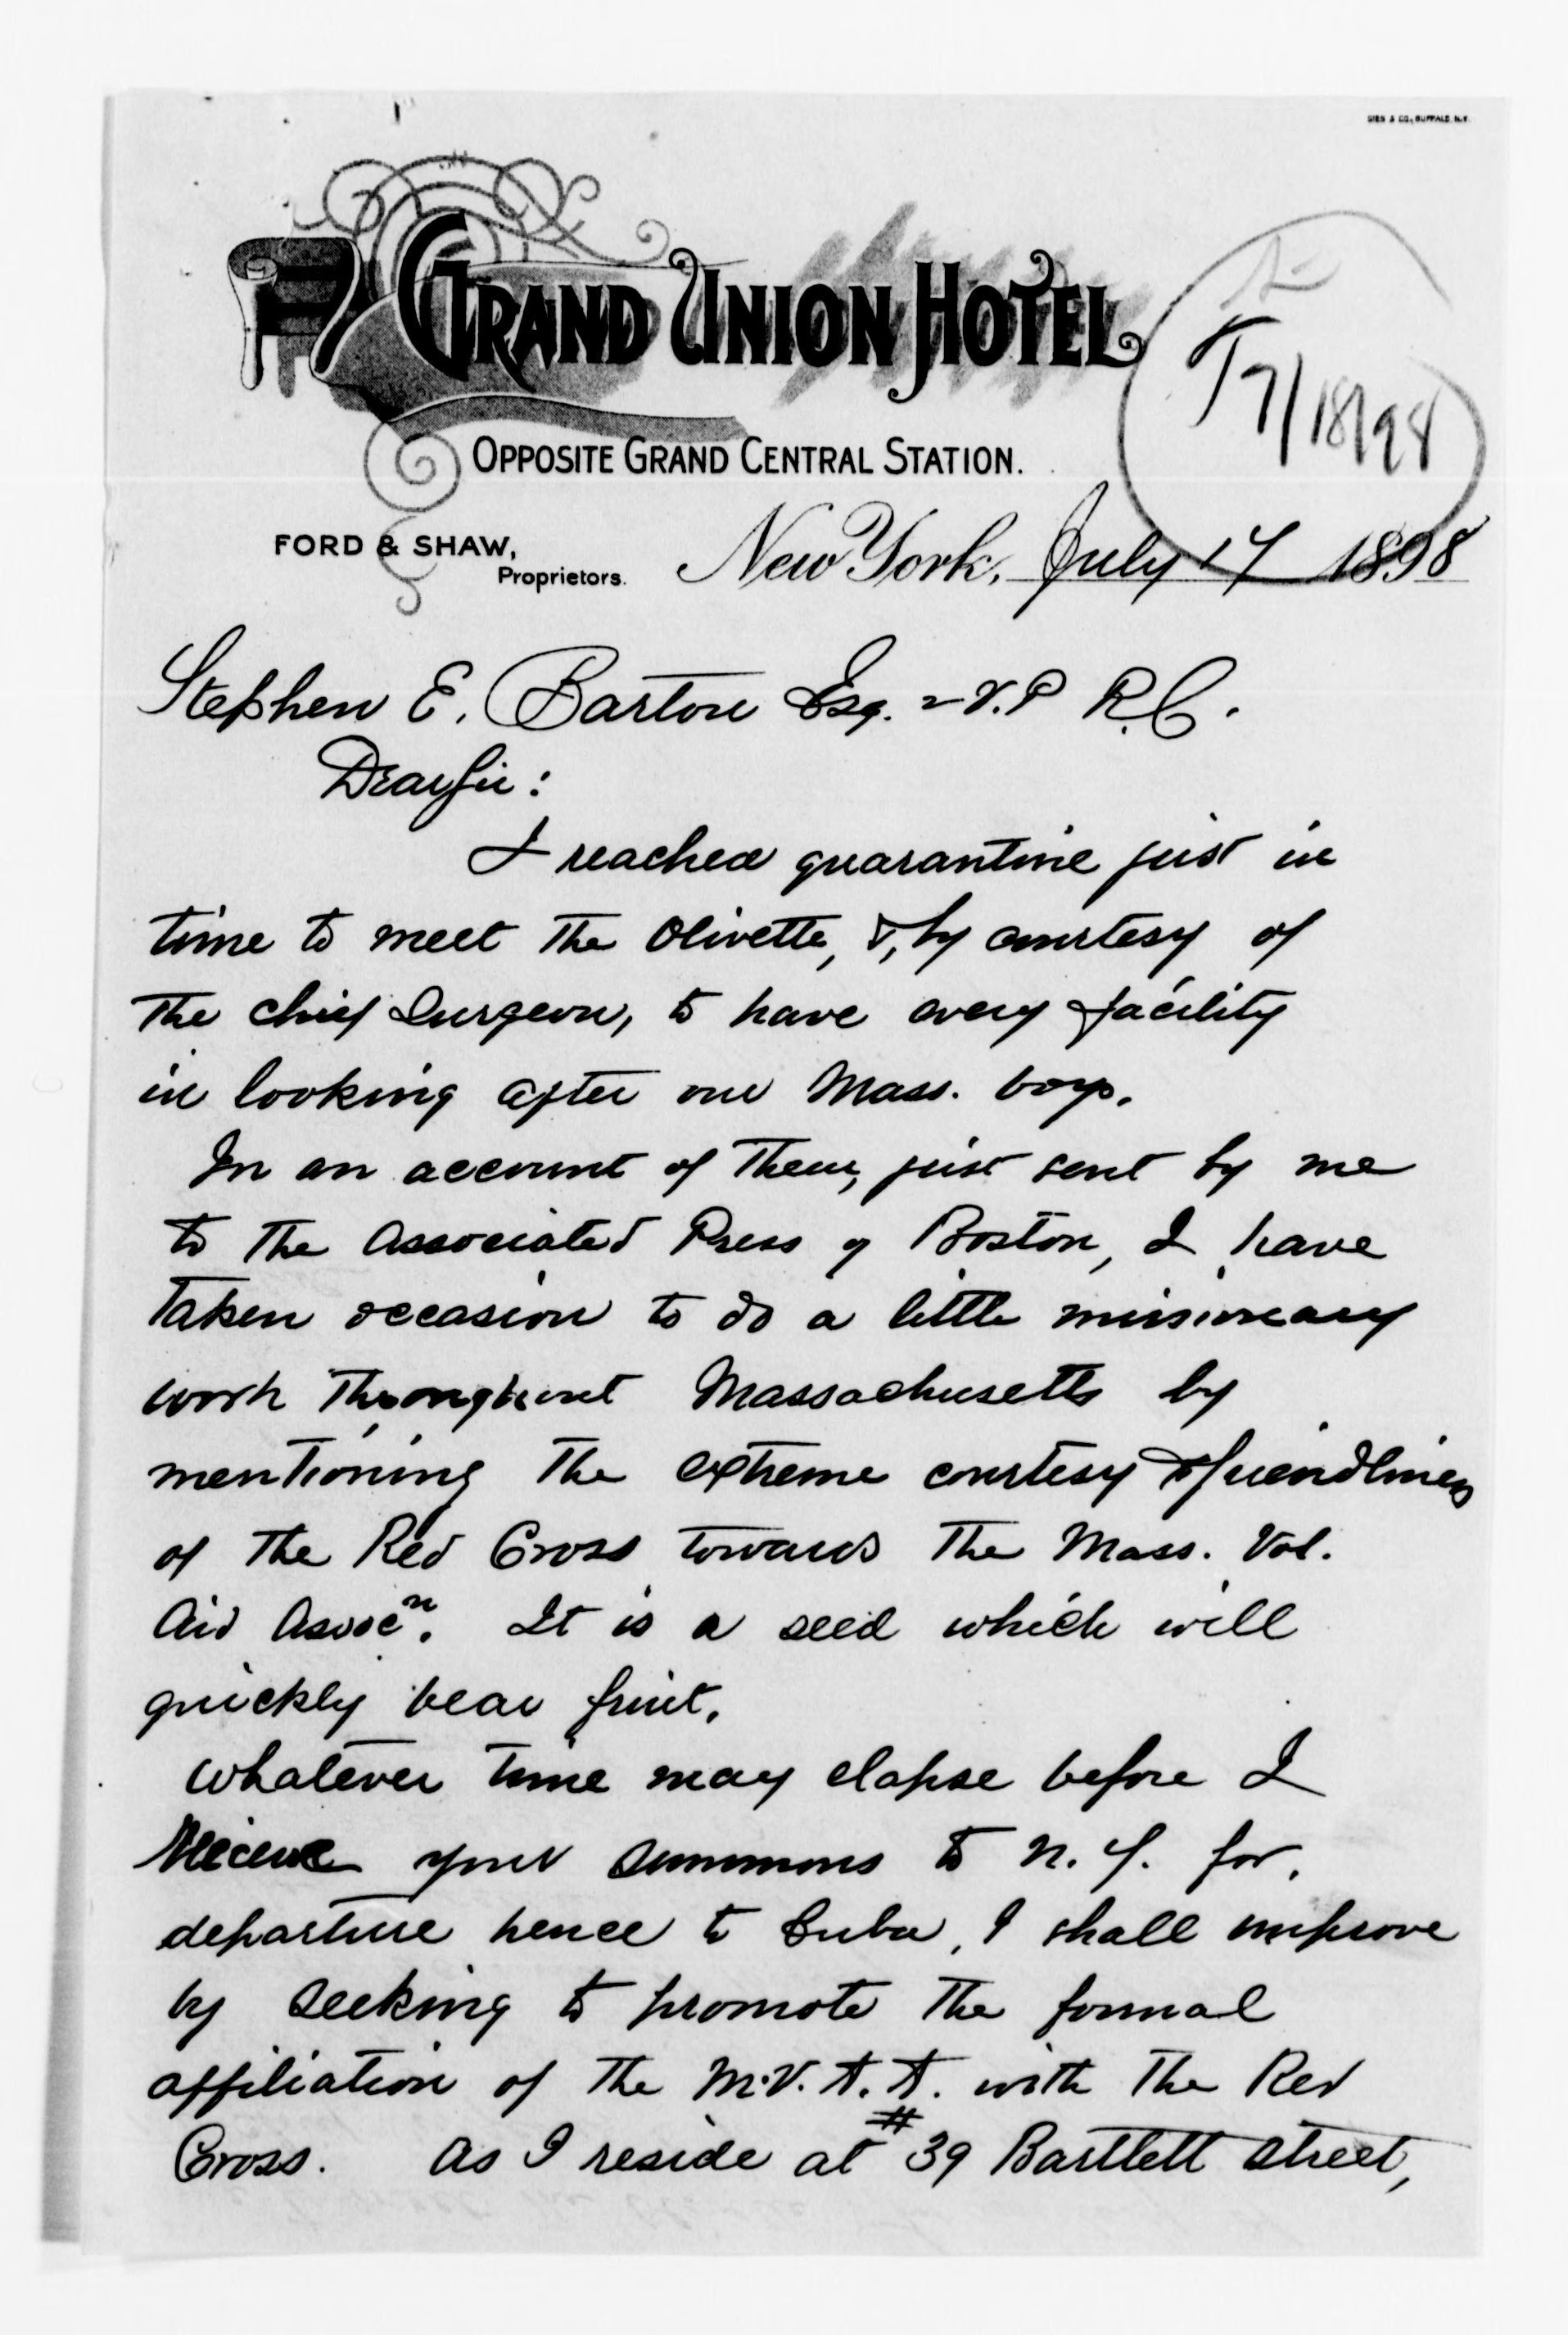 GIES & CO., BUFFALO, N.Y.
GRAND UNION HOTEL
OPPOSITE GRAND CENTRAL STATION.
7/18/98
FORD & SHAW,
Proprietors.
New York, July 17 1898
Stephen E. Barton Esq. 2 V.P R.C.
Dear Sir:
I reached quarantine just in
time to meet the Olivette, &, by courtesy of
the chief Surgeon, to have every facility
in looking after our Mass. boys.
In an account of them, just sent by me
to the Associated Press of Boston, I have
taken occasion to do a little missionary
work throughout Massachusetts by
mentioning the extreme courtesy & friendliness
of the Red Cross towards the Mass. Vol.
Aid Assocn. It is a seed which will
quickly bear fruit.
Whatever time may elapse before I
receive your summons to N.Y. for
departure hence to Cuba, I shall improve
by seeking to promote the formal
affiliation of the M.V.A.A. with the Red
Cross. As I reside at #39 Bartlett Street,